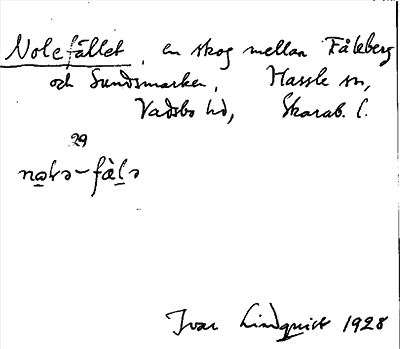 Nolefället, en skog mellan Fåleberg
och Sundsmarken, Hassle sn,
Vadsbo hd, Skarab. l.
29
Ivar Lindquist 1928